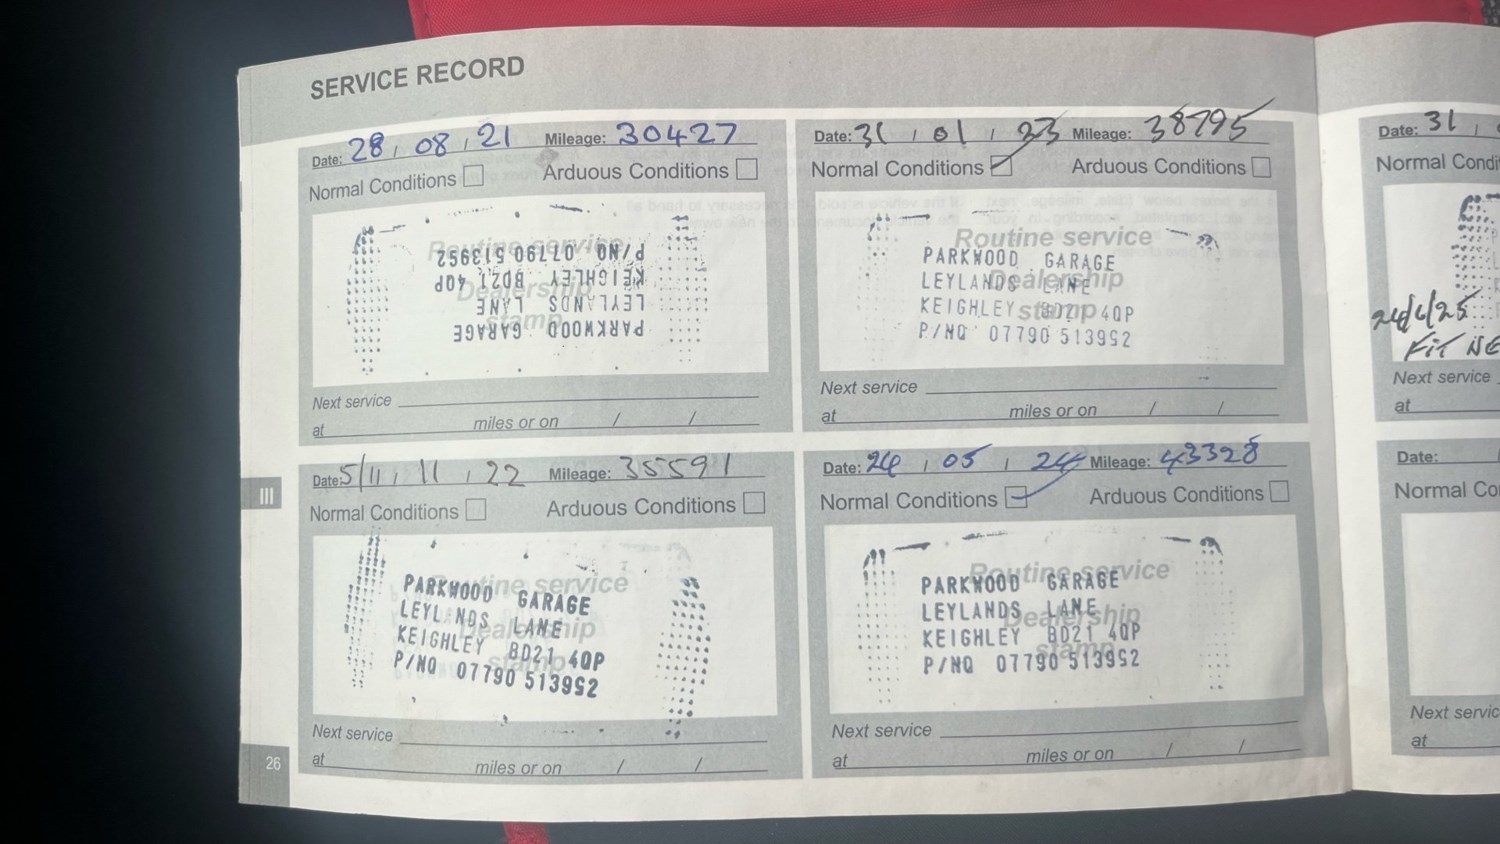 SERVICE RECORD
Date: 28 / 08 / 21 Mileage: 30427
Normal Conditions Arduous Conditions
Routine service
Dealership
stamp
PARKWOOD GARAGE
LEYLANDS LANE
KEIGHLEY BD21 4QP
P/NO 07790 513952
Next service
at miles or on / /
Date: 5/11 / 11 / 22 Mileage: 35591
Normal Conditions Arduous Conditions
Routine service
Dealership
stamp
PARKWOOD GARAGE
LEYLANDS LANE
KEIGHLEY BD21 4QP
P/NO 07790 513952
Next service
at miles or on / /
Date: 31 / 01 / 23 Mileage: 38795
Normal Conditions Arduous Conditions
Routine service
Dealership
stamp
PARKWOOD GARAGE
LEYLANDS LANE
KEIGHLEY BD21 4QP
P/NO 07790 513952
Next service
at miles or on / /
Date: 24 / 05 / 24 Mileage: 43328
Normal Conditions Arduous Conditions
Routine service
Dealership
stamp
PARKWOOD GARAGE
LEYLANDS LANE
KEIGHLEY BD21 4QP
P/NO 07790 513952
Next service
at miles or on / /
III
26
Date: 31
Normal Condi
FIT NE
Next service
at
Date:
Normal Co
Next servic
at